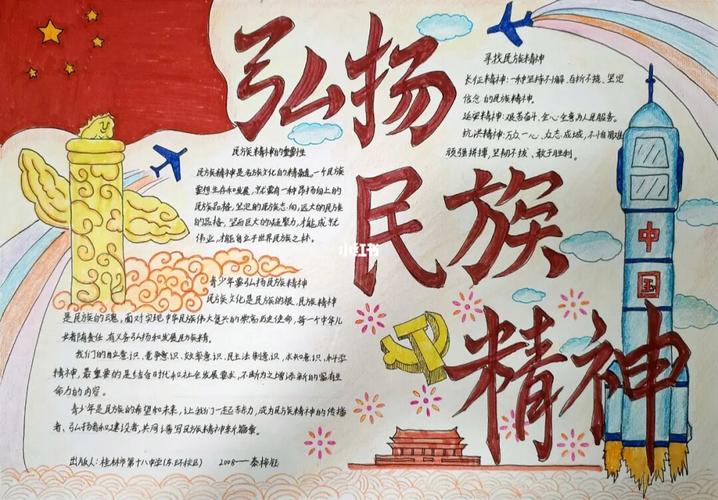 弘扬
民族
精神
民族精神的重要性
民族精神是各族文化的精髓,一个民族
要想生存和发展,就要有一种昂扬向上的
民族品格,坚定的民族志向,远大的民族
的品格,坚而巨大的凝聚力,才能成就
伟业,才能自立于世界民族之林。
寻找民族精神
长征精神:一种坚持不懈、自新不挠、坚定
信念的民族精神。
延安精神:艰苦奋斗、全心全意为人民服务。
抗洪精神:万众一心、众志成城,不怕艰难
顽强拼搏,坚韧不拔、敢于胜利。
青少年要弘扬民族精神
民族文化是民族的根,民族精神
是民族的魂,面对实现中华民族伟大复兴的崇高历史使命,每一个中华儿
女肩负责任,有义务弘扬和发展民族精
我们的自立意识、竞争意识、效率意识、民主法制意识、求知意识、科学
精神,最重要的是结合时代和社会发展要求,不断为之增添新的富有生
命力的内容。
青少年是民族的希望和未来,让我们一起努力,成为民族精神的传播
者、弘扬者和建设者,共同谱写民族精神新篇章。
中国
小红书
出版人:桂林市第十八中学(东环校区) 2008——秦梓钰